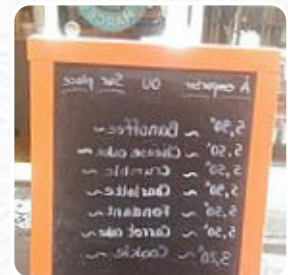 À emporter OU Sur place
5,90 ~ Banoffee ~
5,50 ~ Cheese cake ~
5,50 ~ Crumble ~
5,90 ~ Charlotte ~
5,50 ~ Fondant ~
5,50 ~ Carrot cake ~
3,20 ~ Cookie ~